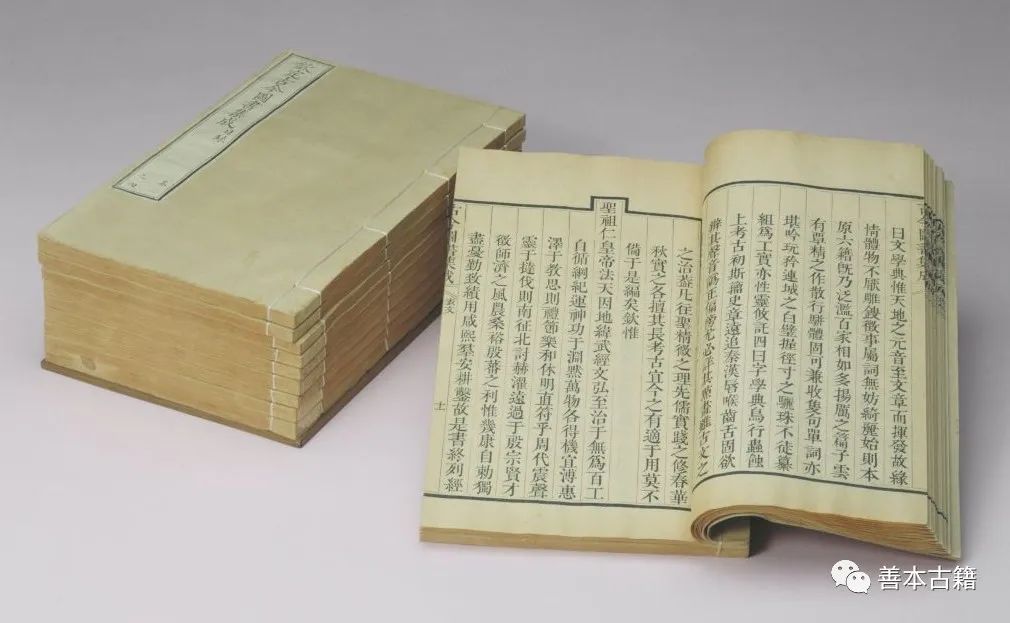 欽定古今圖書集成 目錄
日文學典惟天地之元音至文章而揮發故緣
情體物不厭雕鎪徵事屬詞無妨綺麗始則本
原六籍旣乃泛濫百家相如多揚厲之篇子雲
有覃精之作散行駢體固可兼收隻句單詞亦
堪吟玩矜連城之白璧握徑寸之驪珠不徒纂
組爲工實亦性靈攸託四曰字學典鳥行蟲蝕
上考古初斯籀史章遠追秦漢唇喉齒舌固欲
辨其聲音譌正偏旁尤必詳其
之治蓋凡往聖精微之理先儒實踐之修春華
秋實之各擅其長考古宜今之有適于用莫不
備于是編矣欽惟
聖祖仁皇帝法天因地緯武經文弘至治于無爲百工
自循綱紀運神功于淵黙萬物各得機宜溥惠
澤于教思則禮節樂和休明直符乎周代震聲
靈于撻伐則南征北討赫濯遠過于殷宗賢才
徵師濟之風農桑裕殷蕃之利惟幾康自勅獨
盡憂勤致績用咸熙羣安耕鑿故是書終列經
古今圖書集成 表文 十一
善本古籍